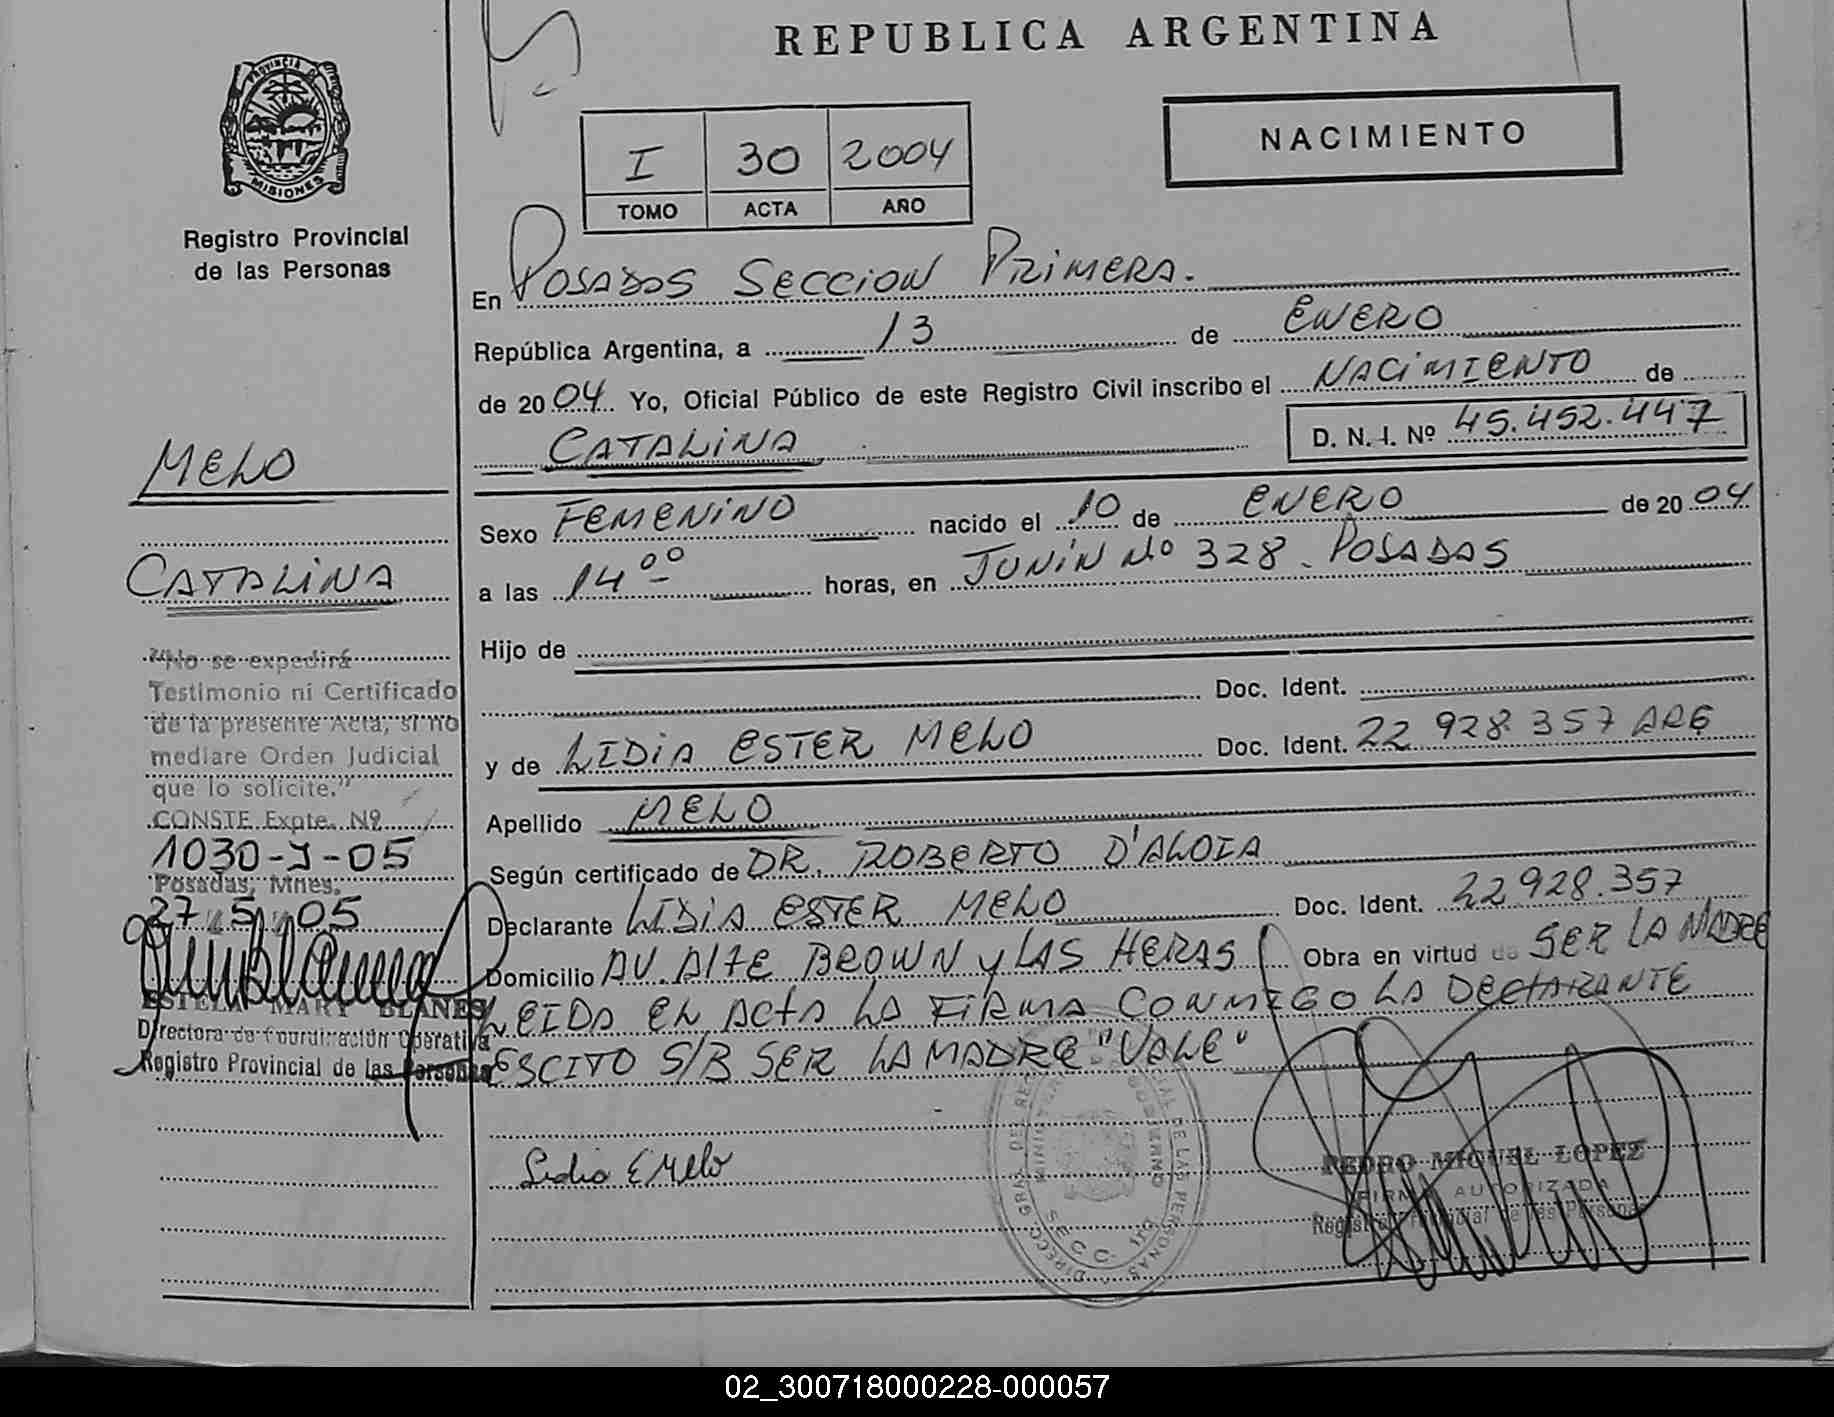 REPUBLICA ARGENTINA
PROVINCIA DE
MISIONES
Registro Provincial
de las Personas
I 30 2004
TOMO ACTA AÑO
NACIMIENTO
En POSADAS SECCION PRIMERA.
República Argentina, a 13 de ENERO
de 2004 Yo, Oficial Público de este Registro Civil inscribo el NACIMIENTO de
CATALINA D. N. I. Nº 45.452.447
Sexo FEMENINO nacido el 10 de ENERO de 2004
a las 14 00 horas, en JUNIN No 328. POSADAS
Hijo de
Doc. Ident.
y de LIDIA ESTER MELO Doc. Ident. 22 928 357 ARG
Apellido MELO
Según certificado de DR. ROBERTO D'ALOIA
Declarante LIDIA ESTER MELO Doc. Ident. 22928.357
Domicilio AV. ALTE BROWN y LAS HERAS Obra en virtud de SER LA MADRE
LEIDA EL ACTA LA FIRMA CONMIGO LA DECLARANTE
ESCITO S/B SER LA MADRE "VALE"
Lidia E Melo
PEDRO MIGUEL LOPEZ
FIRMA AUTORIZADA
Registro Provincial de las Personas
MELO
CATALINA
"No se expedirá
Testimonio ni Certificado
de la presente Acta, si no
mediare Orden Judicial
que lo solicite."
CONSTE Expte. Nº
1030-J-05
Posadas, Mnes.
27 5 05
ESTELA MARY BLANES
Directora de Coordinación Operativa
Registro Provincial de las Personas
02_300718000228-000057